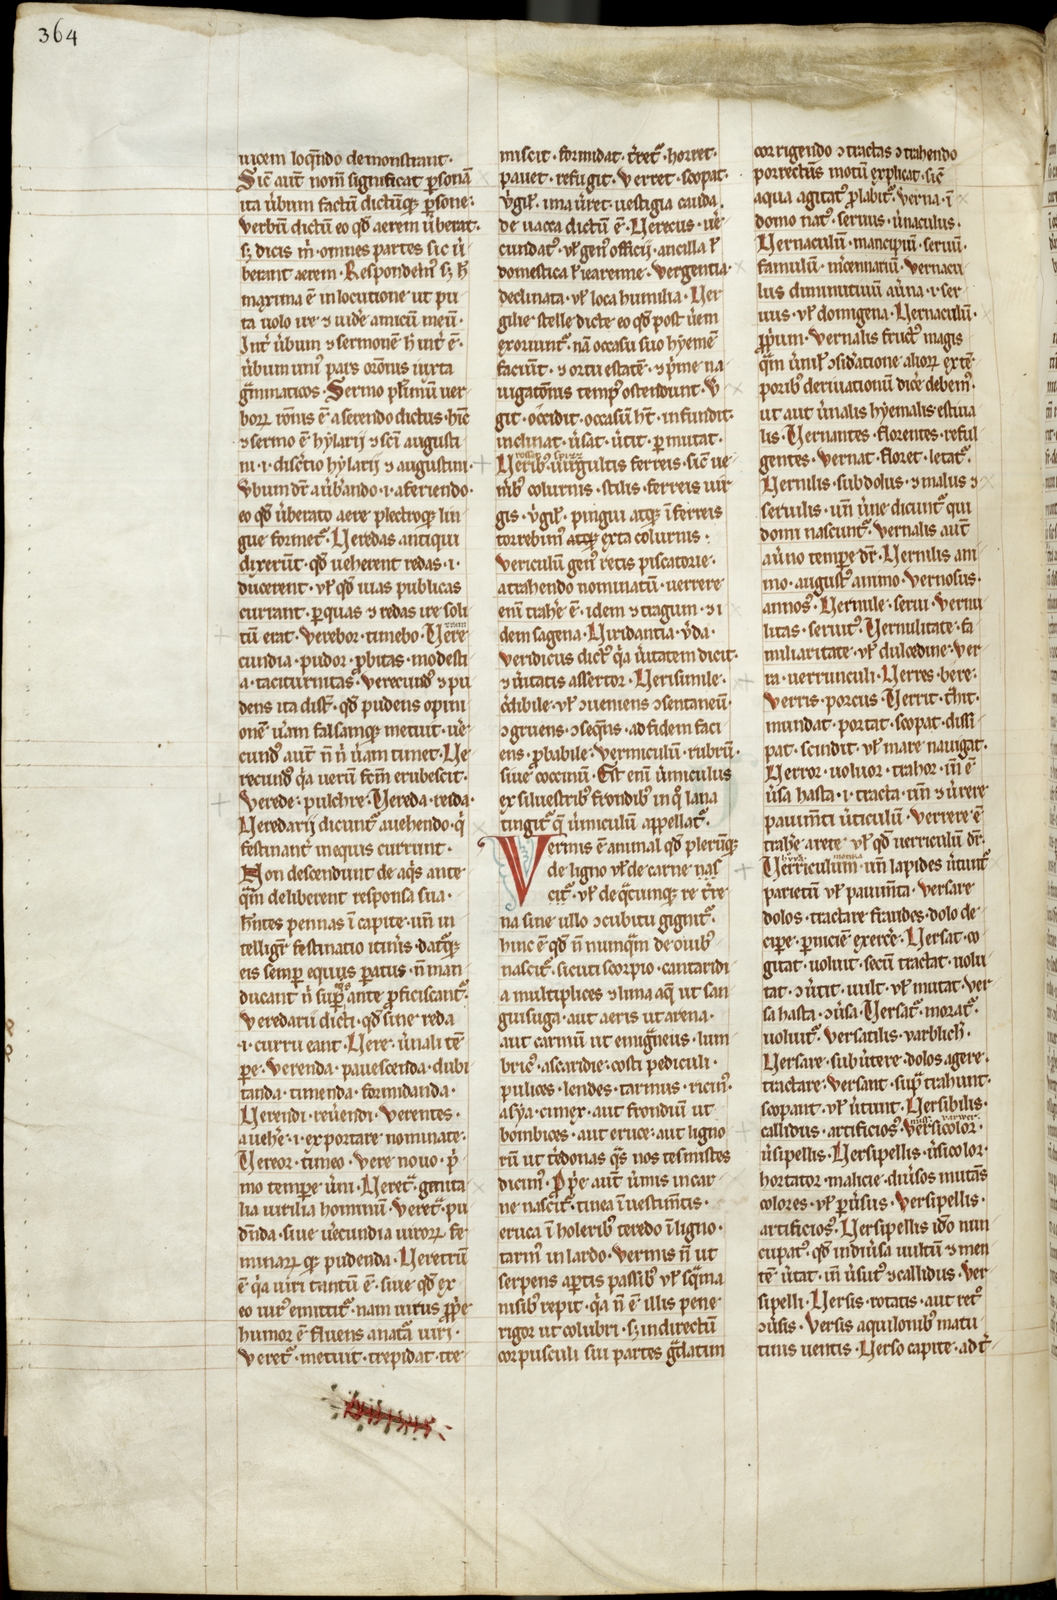 364
uicem loq̄ndo demonstrant·
Sic aut̄ nom̄ significat p̄sonā
ita ūbum factū dictūq; p̄sone·
Verbū dictū eo qđ aerem ūberat·
s; dicis m̄· omnes partes sic ū
berant aerem· Respondem̉ s; h̄
maxima ē in locutione ut pu
ta uolo ire ⁊ uide amicū meū·
Int̄ ūbum ⁊ sermonē h̄ int̄ ē·
ūbum unỉ pars orōnis iuxta
g̃mmaticos· Sermo plīmū uer
boꝝ rōnis ē a serendo dictus· hīc
⁊ sermo ē hylarij ⁊ sc̄i augusti
ni· i· disc̄tio hylarij ⁊ augustini·
Vbum dr̄ a ūbando· i· a feriendo·
eo qđ ūberato aere plectroq; lin
gue formet̉· Veredas antiqui
dixerūt· qđ ueherent redas· i·
ducerent· ul̄ qđ uias publicas
currant· p̄ quas ⁊ redas ire soli
tū erat· Verebor· timebo· Vere
cundia· pudor· p̄bitas· modesti
a· taciturnitas· Verecund̉ ⁊ pu
dens ita dist̄· qđ pudens opini
onē ūam falsamq; metuit· ūe
cund̉ aut̄ n̄ n̄ ūam timet· Ve
recund̉ q̇a uerū fc̄m erubescit·
Verede· pulchre· Vereda· reda·
Veredarij dicunt̉ a uehendo· q̇
festinant̄ in equis currunt·
Non descendunt de aq̄s ante
q̄m deliberent responsa sua·
h̄ntes pennas ī capite· un̄ in
telligit̉ festinatio itin̄is· dat̉q;
eis semp̄ equus p̄atus· n̄ man
ducant n̄ sup̄ eq̉s ante p̄ficiscant̉·
Veredarii dicti· qđ sine reda
·i· curru eant· Vere· ūnali tē
pe· Verenda· pauescenda· dubi
tanda· timenda· formidanda·
Verendi· reūendi· Verentes·
a uehe· i· exportare nominate·
Vereor· timeo· Vere nouo· p̄
mo tempe ūni· Veret̄· genita
lia uirilia hominū· Veret̄· pu
dn̄da· siue ūecundia uiroꝝ fe
minaꝝ q; pudenda· Veretrū
ē q̇a uiri tantū ē· siue qđ ex
eo uir̉ emittit̉· nam uirus p̄p̄e
humor ē fluens a natā uiri·
Veret̉· metuit· trepidat· tre
miscit· formidat· t̄ret̉· horret·
pauet· refugit· Verret· scopat·
v̄gil̄· ima ūret uestigia cauda·
de uacca dictū ē· Verecus· ūe
cundat̉· ul̄ gen̉ officij· ancilla ul̄
domestica
Vergentia·
declinata· ul̄ loca humilia· Ver
gilie stelle dicte eo qđ post ūem
exoriunt̉· nā occasu suo hyemē
faciūt· ⁊ ortu estatē· ⁊ p̄me na
uigatōnis temp̉ ostendunt· V̄
git· occidit· occasū ht̄· infundit·
inclinat· ūsat· ūtit· p̄mutat·
Verib̉ uirgultis ferreis· sic̄ ue
r̄ib̉ colurnis· stilis· ferreis uir
gis· v̄gil̄· pingui atq; ī ferreis
torrebim̉ exta colurnis·
Vericulū gen̉ retis piscatorie·
a trahendo nominatū· uerrere
enī trahe ē· idem ⁊ tragum· ⁊ i
dem sagena· Viridantia· v̄da·
Veridicus dict̉ q̇a ūitatem dicit·
⁊ ūitatis assertor· Verisimile·
c̄dibile· ul̄ ɔueniens ɔsentaneū·
ɔgruens· ɔseq̄ns· ad fidem faci
ens· p̄babile· Vermiculū· rubrū·
siue coccinū· Est enī ūmiculus
ex siluestrib̉ frondib̉ in q̉ lana
tingit̉ q̄ ūmiculū appellat̉·
Vermis ē animal qđ plerūq;
de ligno ul̄ de carne nas
cit̉· ul̄ de q̄cumq; re t̄re
na sine ullo ɔcubitu gignit̉·
hinc ē qđ n̄ numq̄m de ouib̉
nascit̉· sicuti scorpio· cantaridi
a multiplices ⁊ luna aq̄ ut san
guisuga· aut aeris ut arena·
aut carniū ut emig̃neus· lum
bric̉· ascaridie· costi pediculi·
pulices· lendes· tarmus· ricin̉·
asya· cimex· aut frondiū ut
bombices· aut eruce· aut ligno
rū ut t̄edonas q̄s nos tesmistes
dicim̉· P̄p̄e aut̄ ūmis in car
ne nascit̉· tinea ī uestim̄tis·
eruca ī holerib̉ teredo ī ligno·
tarm̉ in lardo· Vermis n̄ ut
serpens ap̄tis passib̉ ul̄ sq̄ma
nisib̉ repit· q̇a n̄ ē illis pene
rigor ut colubri· s; in directū
corpusculi sui partes g̃datim
corrigendo ɔtractas ɔtrahendo
porrectus motū explicat· sic̄
aqua agitat̉ p̄labit̉· Verna· ī
domo nat̉· seruus· ūnaculus·
Vernaculū· mancipiū· seruū·
famulū· m̄cennariū· Vernacu
lus diminutiuū a ūna· i· ser
uus· ul̄ domigena· Vernaculū·
p̄p̄ium· Vernalis fruct̉ magis
q̄m ūnil̄ ɔsid̄atione alioꝝ exte
poribus deriuationū dic̄e debem̉·
ut aut ūnalis hyemalis estiua
lis· Vernantes· florentes· reful
gentes· Vernat· floret· letat̉·
Vernilis· subdolus· ⁊ malus ⁊
seruilis· un̄ ūne dicunt̉ qui
domi nascunt̉· Vernalis aut̄
a ūno tempe dr̄· Vernilis ani
mo· august̉ animo· Vernosus·
annos̉· Vernule· serui· Vernu
litas· seruit̉· Vernulitate· fa
miliaritate· ul̄ dulcedine· Ver
ra· uerrunculi· Verres· bere·
Verris· porcus· Verrit· t̄hit·
mundat· portat· scopat· dissi
pat· scindit· ul̄ mare nauigat·
Verror· uoluor· trahor· in̄ ē
ūsa hasta· i· tracta· un̄ ⁊ ūrere
pauim̄ti ūticulū· Verrere ē
trahe· a rete· ul̄ qđ uerriculū dr̄·
Verriculum· un̄ lapides ūtunt̉
parietū ul̄ pauim̄ta· Versare
dolos· tractare fraudes· dolo de
cipe· p̄niciē exerc̄e· Versat· co
gitat· uoluit· secū tractat· uolu
tat· ɔūtit· uult· ul̄ mutat· Ver
sa hasta· ɔūsa· Versat̉· morat̉·
uoluit̉· Versatilis· varblich̉·
Versare· subūtere· dolos agere·
tractare· Versant· sup̄ trahunt·
scopant· ul̄ ūtunt· Versibilis·
callidus· artificios̉· Versicolor·
ūsipellis· Versipellis· ūsicolor·
hortator· malicie· diūsos mutās
colores· ul̄ p̄ūsus· Versipellis·
artificios̉· Versipellis id̄o nun
cupat̉· qđ in diūsa uultū ⁊ men
tē ūtat· in̄ ūsut̉ ⁊ callidus· Ver
sipelli· Versis· rotatis· aut ret̉
ɔūsis· Versis aquilonib̉ matu
tinis uentis· Verso capite· ad t̄